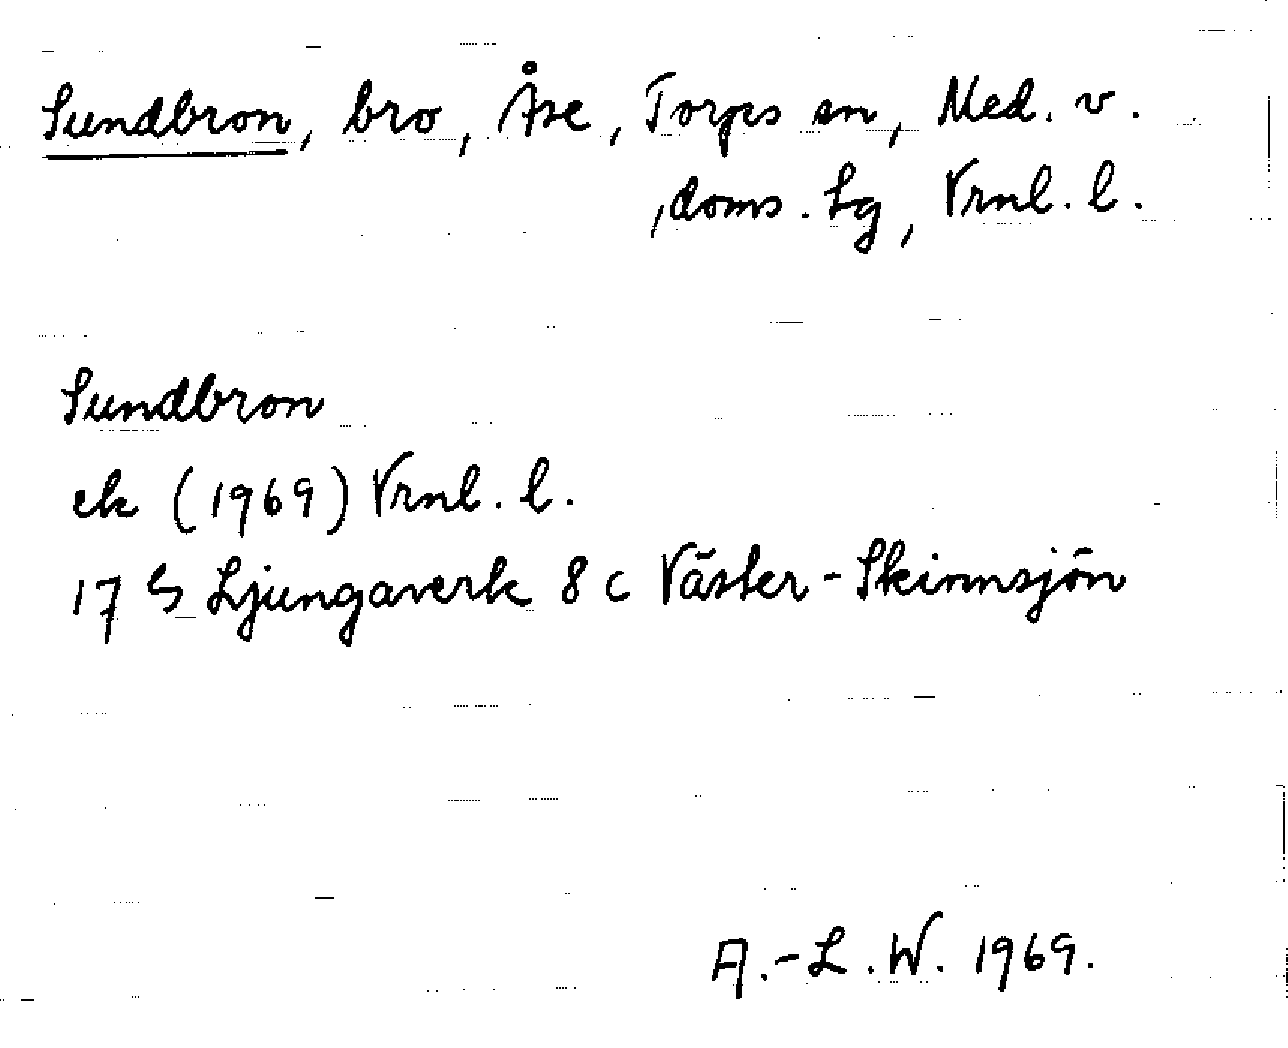 Sundbron, bro, Åse, Torps sn, Med. v.
doms. lg, Vrnl. l.
Sundbron
ek (1969) Vrnl. l.
17 G Ljungaverk 8 c Väster-Skinnsjön
A.-L.W. 1969.